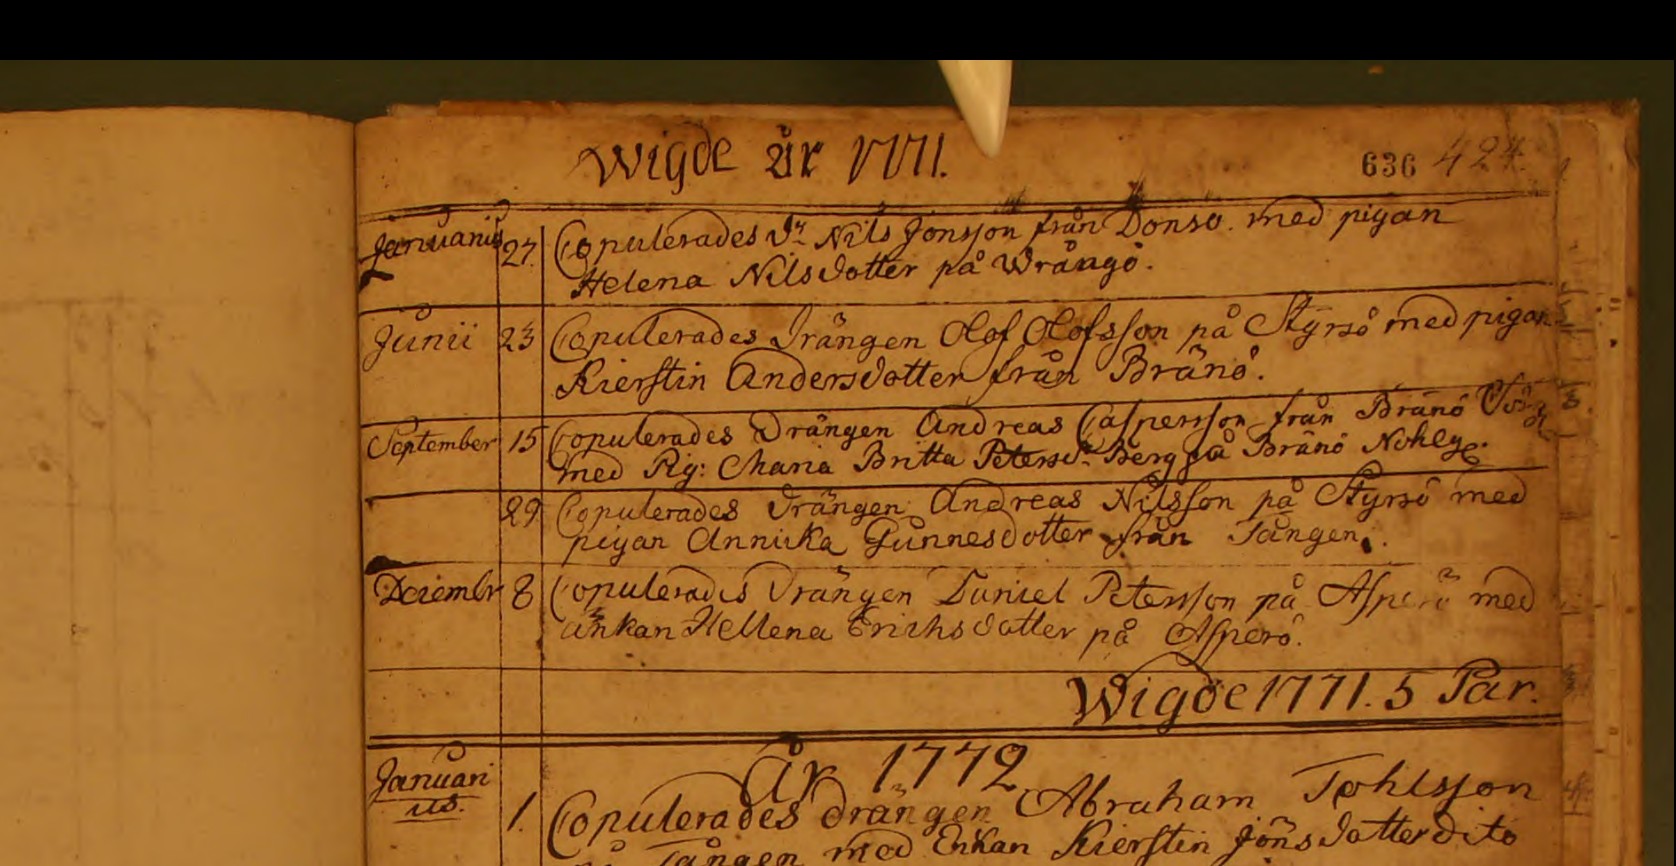 Wigde år 1771.
636 424.
Januarius 27. Copulerades Dr: Nils Jonsson från Donsö. med pigan
Helena Nilsdotter på Wrångö.
Junii 23 Copulerades Drängen Olof Olofsson på Styrsö med pigan
Kierstin Andersdotter från Bränö.
September 15 Copulerades Drängen Andreas Caspersson från Bränö
med Pig: Maria Britta Petersdr: Berg på Bränö Nohlg:
29 Copulerades Drängen Andreas Nilsson på Styrsö med
pigan Annicka Gunnesdotter från Tången.
Decembr 8 Copulerades Drängen Daniel Petersson på Asperö med
änkan Hellena Erichsdotter på Asperö.
Wigde 1771. 5 Par.
År 1772
Januarius. 1. Copulerades drängen Abraham
på Tången med Enkan Kierstin Jönsdotter dito